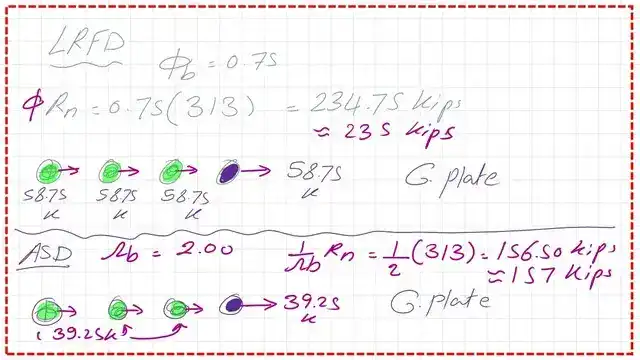 LRFD
Φb = 0.75
ΦRn = 0.75(313) = 234.75 Kips
≈ 235 Kips
58.75 K 58.75 K 58.75 K 58.75 K G. plate
ASD Ωb = 2.00 1/Ωb Rn = 1/2 (313) = 156.50 Kips
≈ 157 Kips
39.25 K G. plate
39.25K